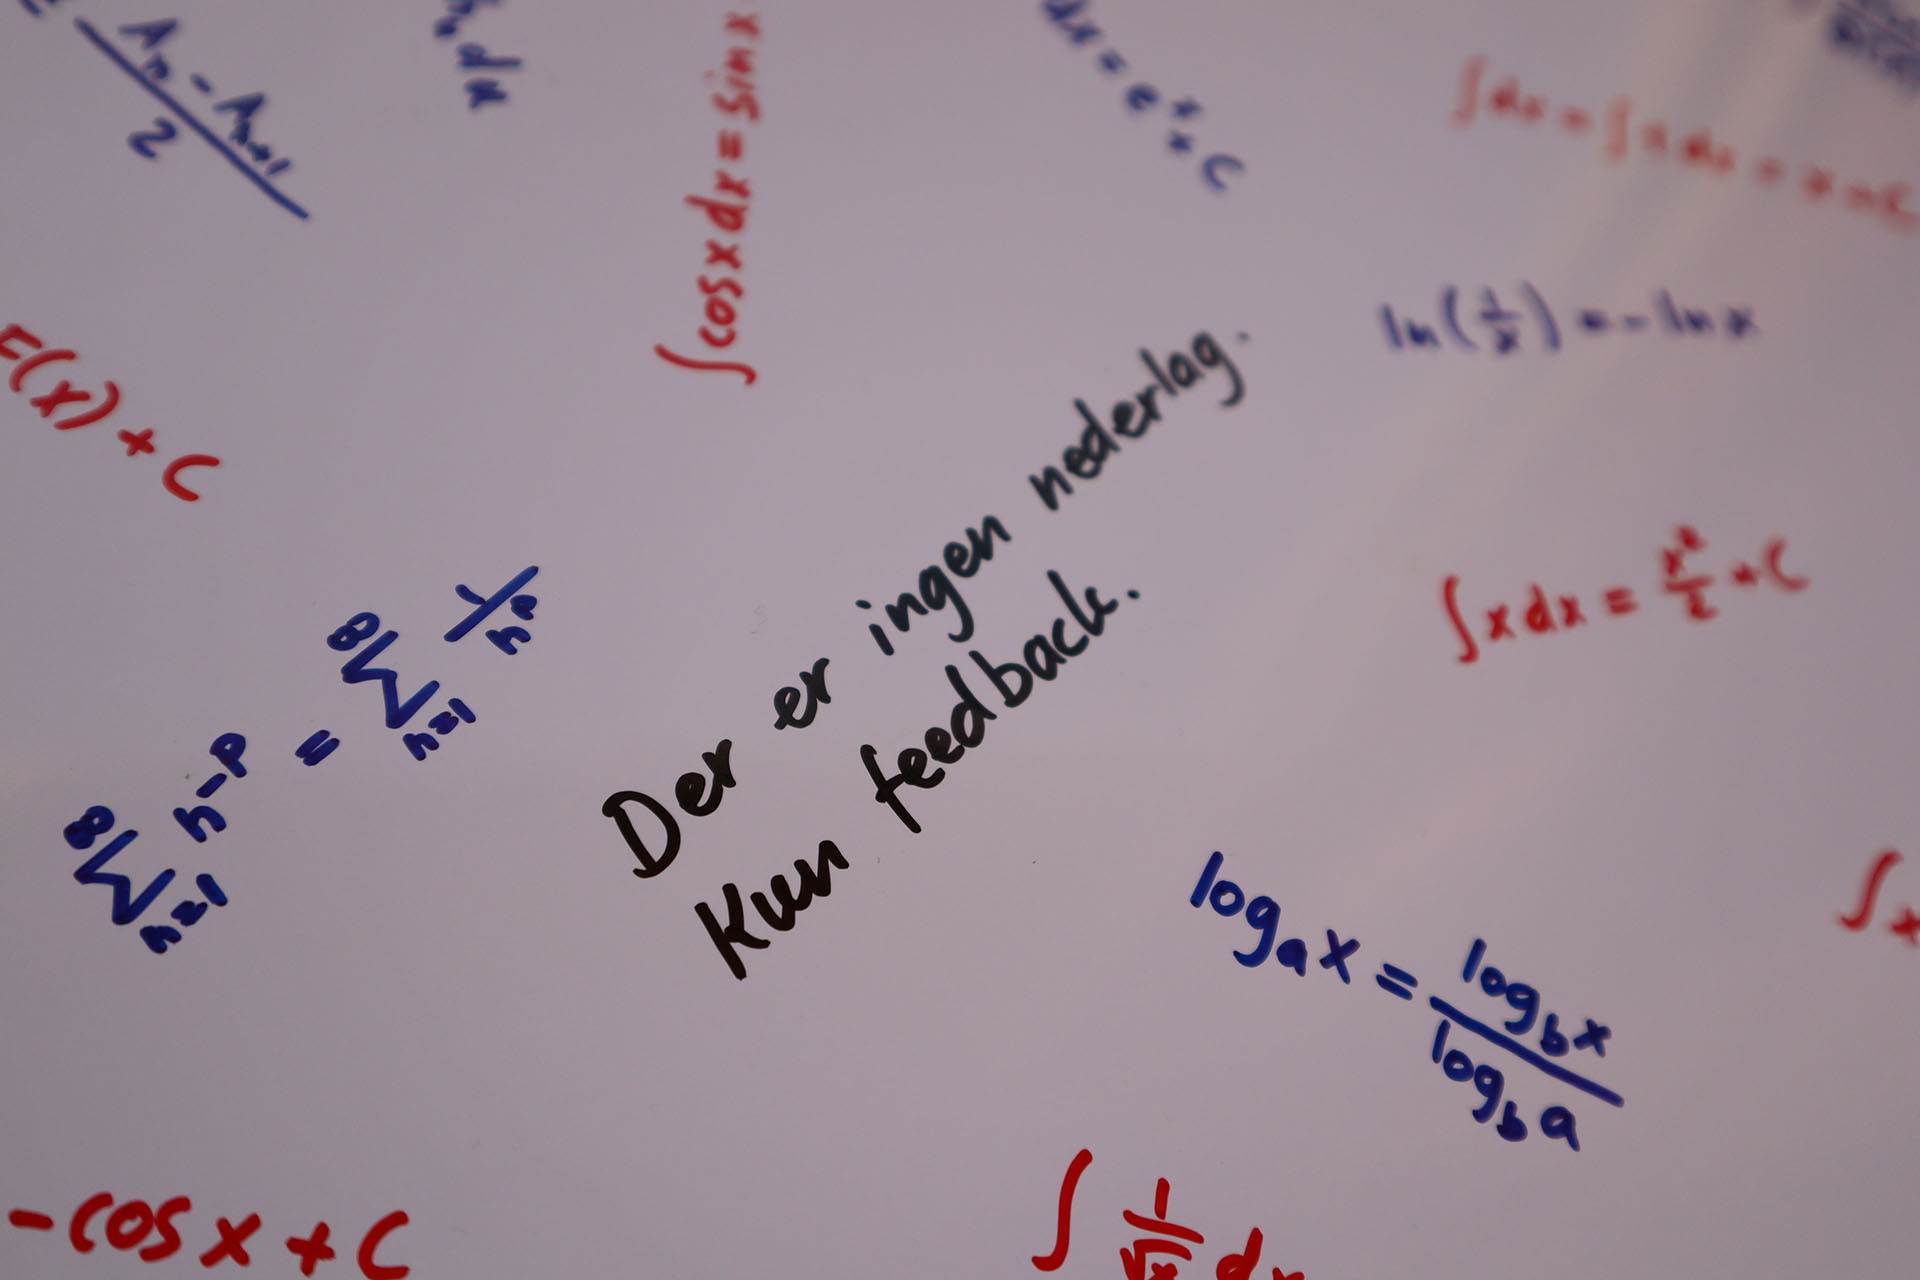 Aₙ - Aₙ₊₁
2
dx
∫cosxdx = sinx
dx = eˣ + C
∫dx = ∫1dx = x + C
ln(1/x) = -lnx
F(x) + C
Der er ingen nederlag.
Kun feedback.
∫xdx = x²/2 + C
∞∑n=1 n⁻ᵖ = ∞∑n=1 1/nᵖ
logₐx = log_b x / log_b a
∫x
-cosx + C
∫ 1/√x dx